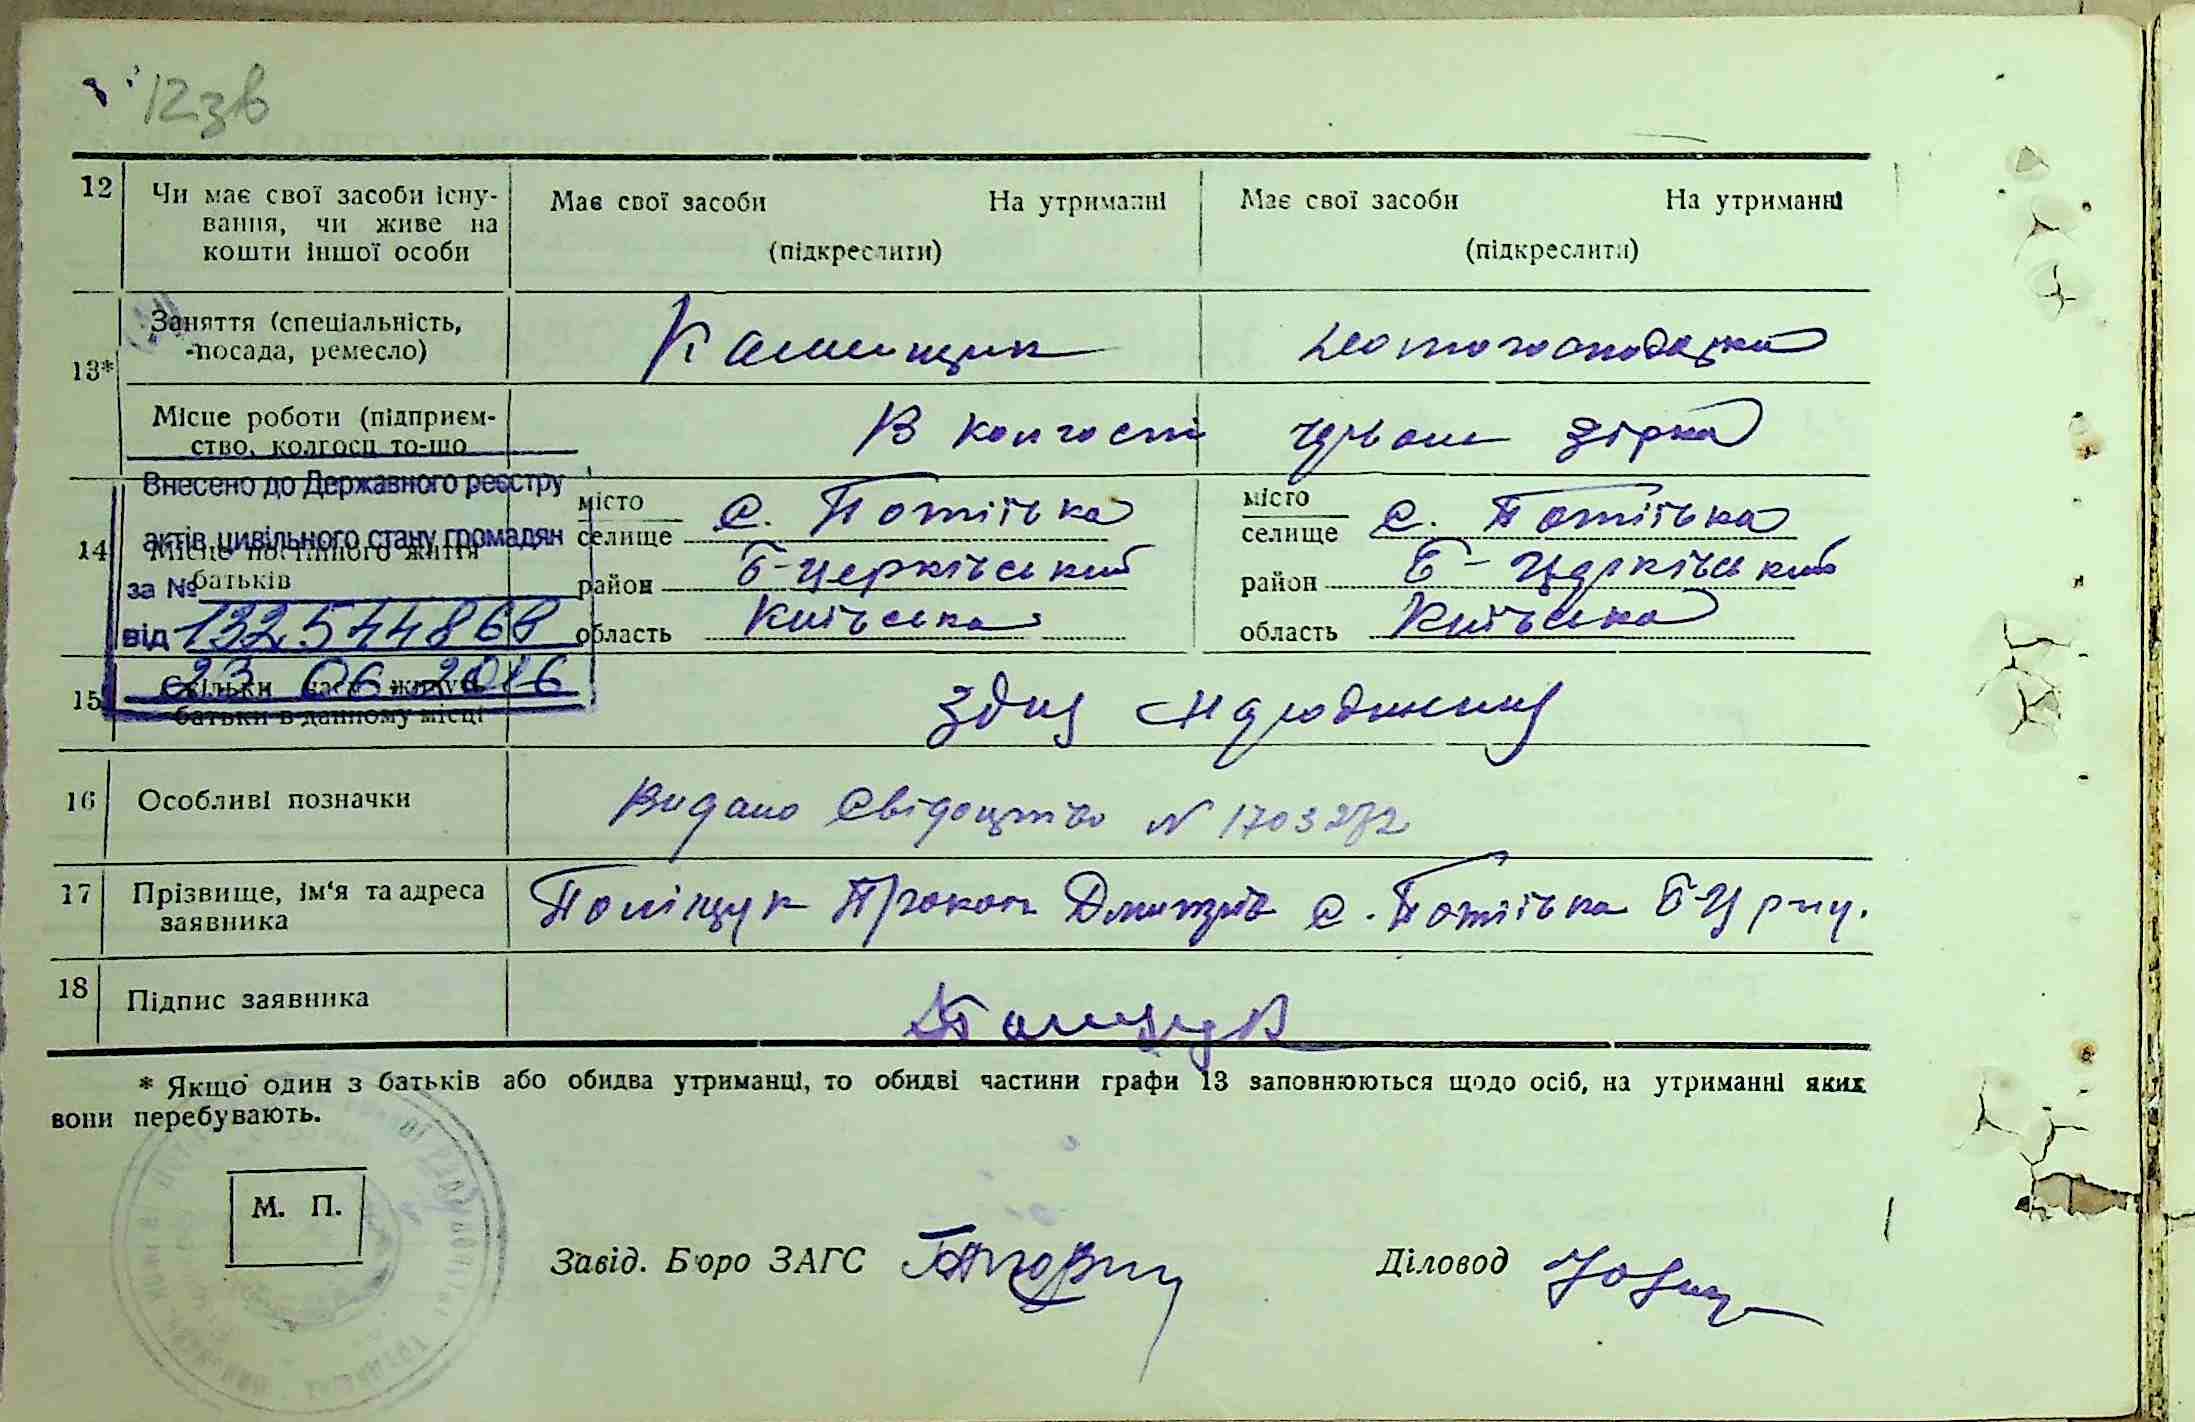 12зв
12 Чи має свої засоби існу- Має свої засоби На утриманні Має свої засоби На утриманні
вання, чи живе на
кошти іншої особи (підкреслити) (підкреслити)
13* Заняття (спеціальність,
посада, ремесло) домогосподарка
Місце роботи (підприєм-
ство, колгосп то-що В колгоспі Червона Зірка
Внесено до Державного реєстру
актів цивільного стану громадян
за №
від 132544868
23 06 2016
14 Місце постійного життя
батьків
місто
селище с. Потіївка
район Б-Церківський
область Київська
місто
селище с. Потіївка
район Б-Церківський
область Київська
15 Скільки часу живуть
батьки в данному місці з дня народження
16 Особливі позначки Видано Свідоцтво N 1703272
17 Прізвище, ім‘я та адреса
заявника Поліщук Прокоп Дмитрів с. Потіївка Б-Ц р-ну.
18 Підпис заявника Поліщук
* Якщо один з батьків або обидва утриманці, то обидві частини графи 13 заповнюються щодо осіб, на утриманні яких
вони перебувають.
М. П.
Завід. Бюро ЗАГС Діловод